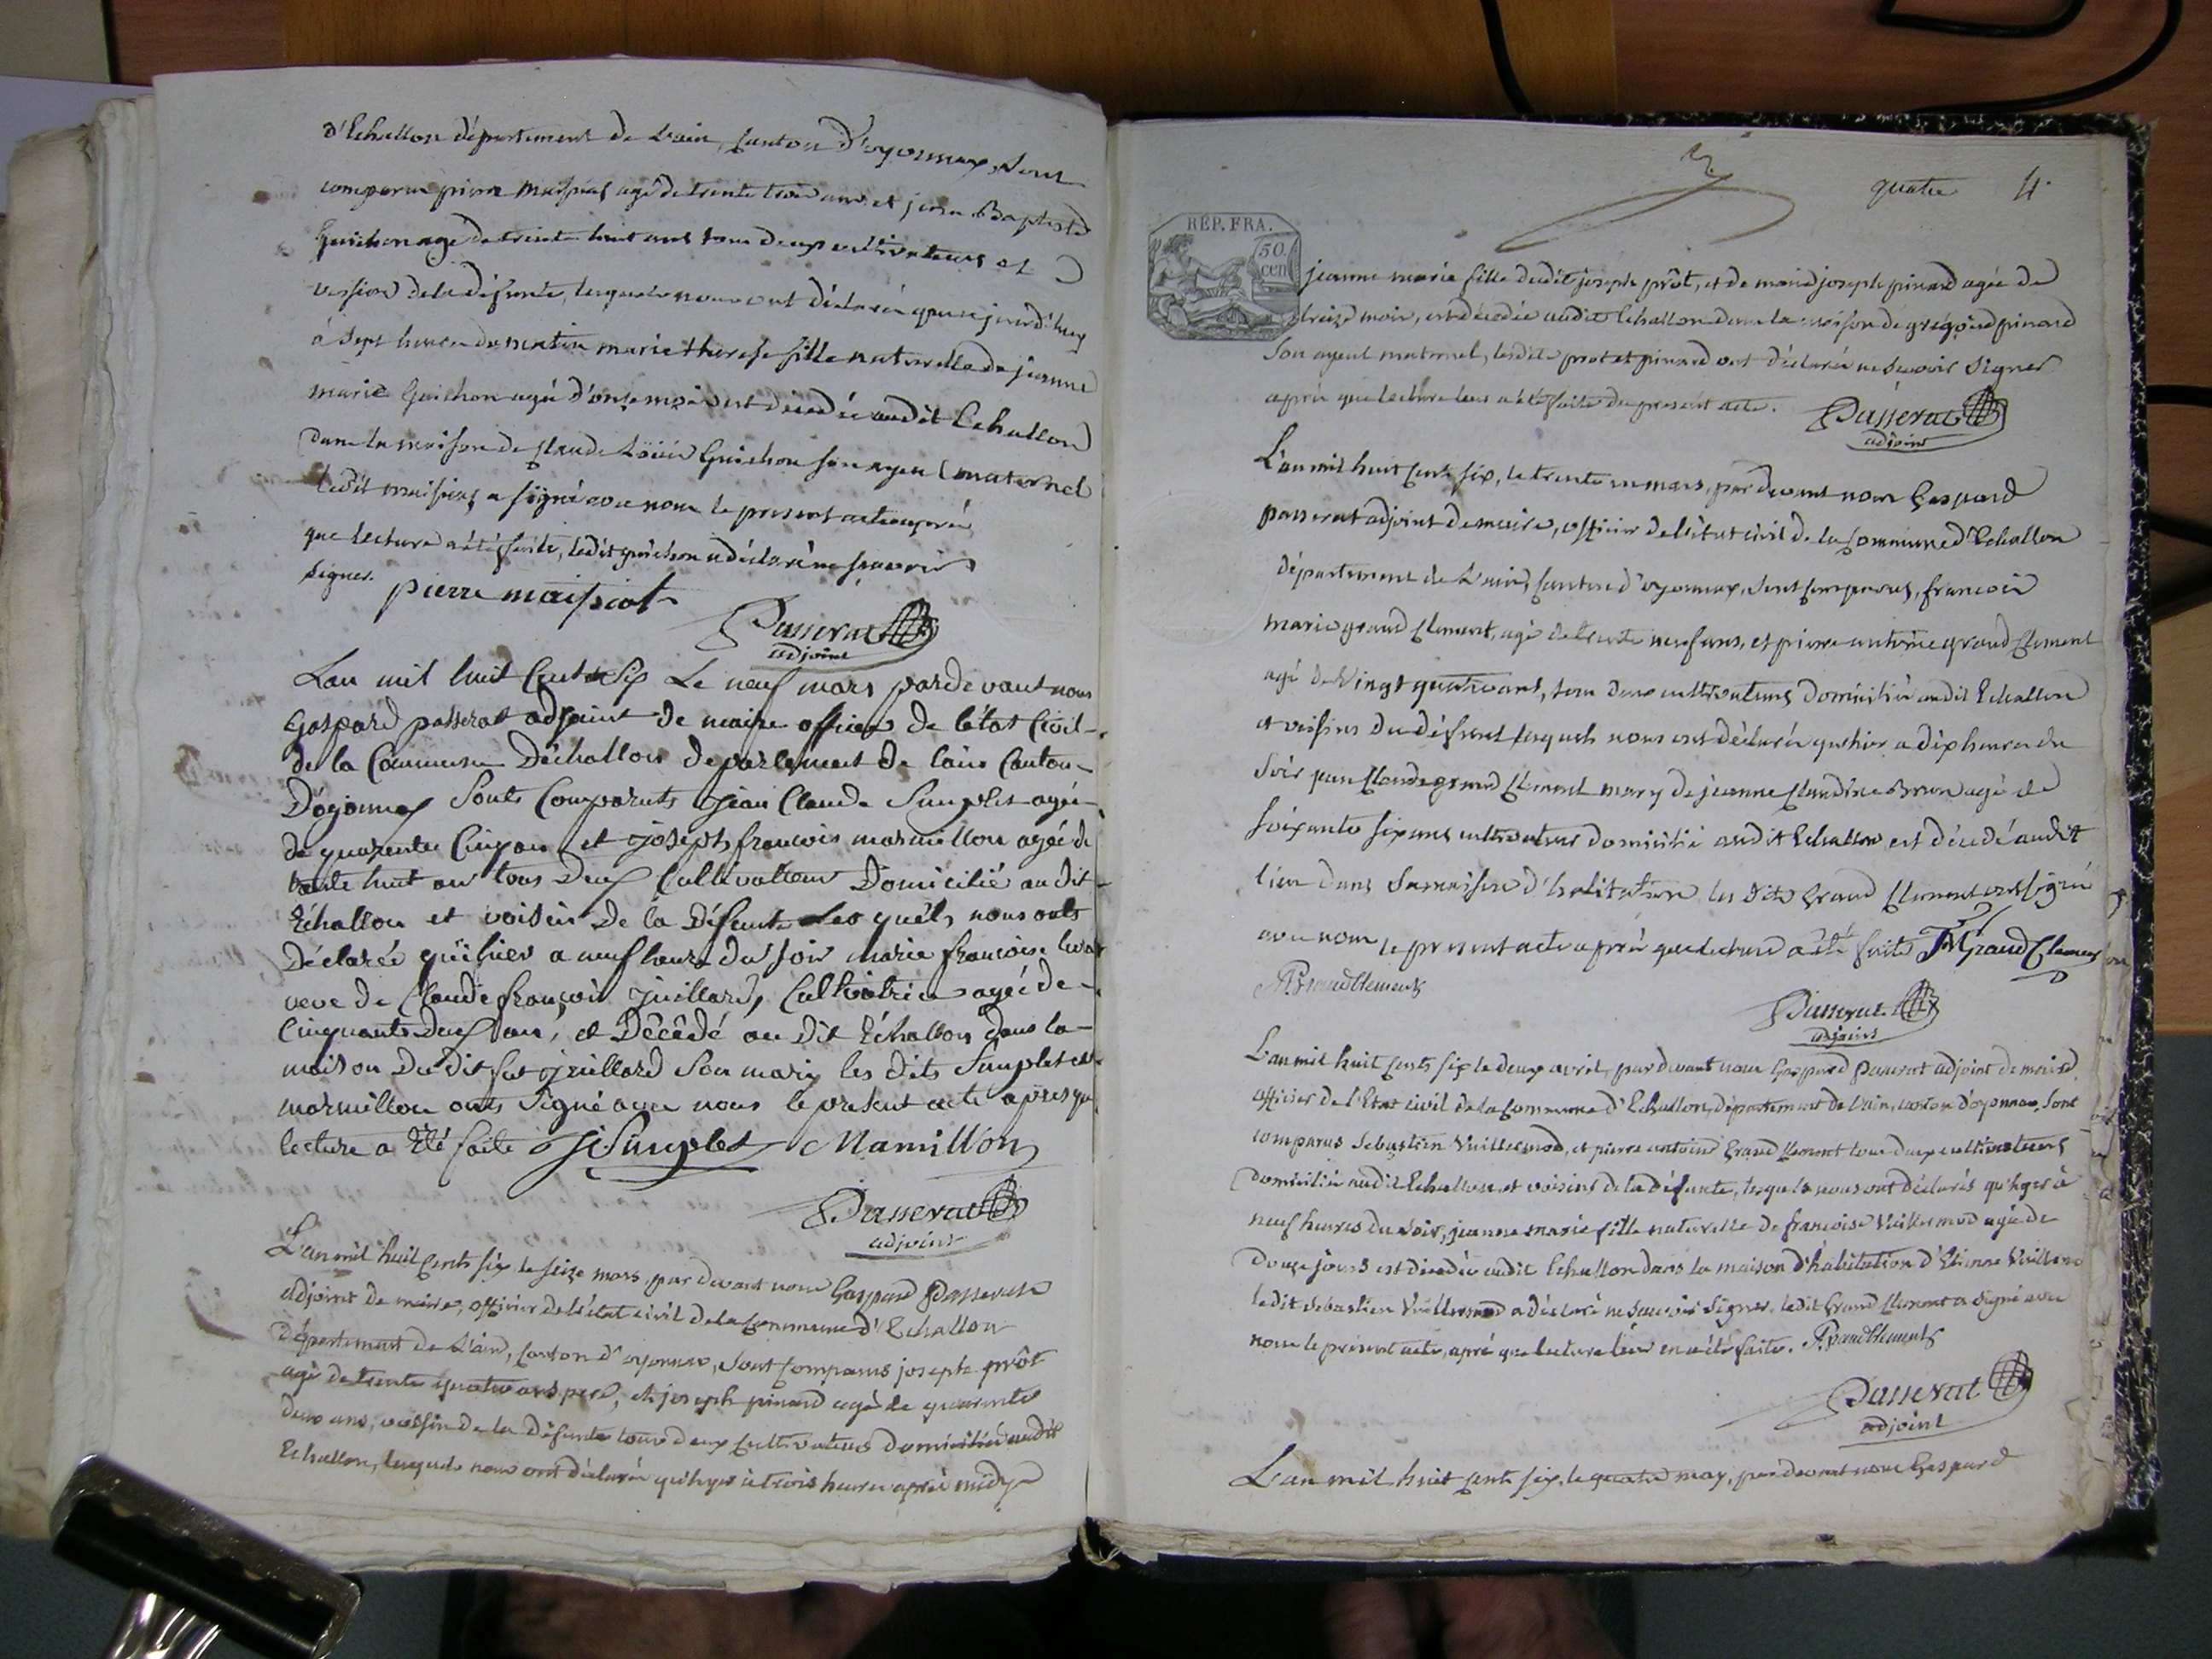 d'Echallon département de Lain, Canton d'oyonnax, Sont
comparus pierre maissiat agé de trente trois ans et jean Baptiste
Guichon agé de trente huit ans tous deux cultivateurs et
voisins de la défunte, lesquels nous ont déclaré que ce jourd'huy
à Sept heures du matin marie therese fille naturelle de jeanne
marie Guichon agée d'onze mois est décédée audit Echallon
dans la maison de Claude Guichon son ayeul maternel
ledit maissiat a signé avec nous le present acte après
que lecture a été faite, ledit guichon a déclaré ne scavoir
signer. pierre maissiat
Passerat
adjoint
Lan mil huit Cent Six Le neuf mars pardevant nous
Gaspard passerat adjoint de maire officier de létat Civil
de la Commune Déchallon departement de lain Canton
Doyonnax Sonts Comparuts Jean Claude Simplet agée
de quarente Cinq ans et joseph francois marmillon agée de
trente huit ans tous Deux Cultivateur Domicilié au dit
Echallon et voisin de la Défunte Les quels nous onts
Déclarée quehier a neuf heure du soir Marie francoise
veve de Claude françois juillard, Cultivatrice agée de
Cinquante Deux ans, et Décêdé au dit Echallon dans la
maison Du dit fut juillard Son mary les dits Simplet et
marmillon onts signé avec nous le present acte apres que
lecture a Eté faite J Simplet Mamillon
Passerat
adjoint
L'an mil huit Cents six, le seize mars, par devant nous Gaspard Passerat
adjoint de maire, officier de l'état civil de la Commune d'Echallon
département de L'ain, Canton d'oyonnax, Sont Comparus josephe prôt
agé de trente quatre ans pere, et joseph pinard agé de quarente
deux ans, voisin de la défunte tous deux Cultivateurs domiciliés audit
Echallon, lesquels nous ont déclaré qu'hyer à trois heures après midy
quatre 4.
REP. FRA.
50 cen
jeanne marie fille dudit joseph prôt, et de marie josephe pinard agée de
treize mois, est décédée audit Echallon dans la maison de grégoire pinard
Son ayeul maternel, lesdits prot et pinard ont déclaré ne scavoir Signer
après que lecture leur a été faite du present acte. Passerat
adjoint
L'an mil huit Cents six, le trente un mars, par devant nous Gaspard
passerat adjoint de maire, officier de l'état civil de la Commune d'Echallon
département de L'ain, Canton d'oyonnax, Sont Comparus, francois
marie grand Clement, agé de trente neuf ans, et pierre antoine grand Clement
agé de Vingt quatre ans, tous deux cultivateurs domiciliés audit Echallon
et voisins du défunt lesquels nous ont déclaré qu'hier a dix heures du
Soir jean Claude grand Clement mary de jeanne Claudine Brun agé de
soixante six ans cultivateur domicilié audit Echallon est décédé audit
lieu dans Sa maison d'habitation les dits Grand Clement ont signé
avec nous le present acte après que lecture a été faite FMGrand Clement
PAGrandClement
Passerat
adjoint
L'an mil huit Cents six le deux avril, par devant nous Gaspard Passerat adjoint de maire,
officier de l'Etat civil de la Commune d'Echallon, département de l'ain, canton d'oyonnax, Sont
comparus Sebastien Vuillermod, et pierre antoine Grand Clement tous deux cultivateurs
domiciliés audit Echallon, et voisins de la défunte, lesquels nous ont déclarés qu'hyer à
neuf heures du soir, jeanne marie fille naturelle de francoise Vuillermod agée de
douze jours est décédée audit Echallon dans la maison d'habitation d'Etienne Vuillermod
ledit Sebastien Vuillermod a déclaré ne scavoir signer. ledit Grand Clement a signé avec
nous le present acte, apré que lecture leur en a été faite. PAGrandClement
Passerat
adjoint
L'an mil huit Cents six, le quatre may, par devant nous Gaspard